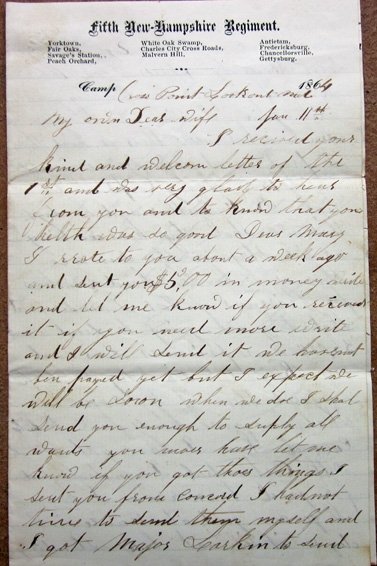 Fifth New-Hampshire Regiment.
Yorktown, White Oak Swamp, Antietam,
Fair Oaks, Charles City Cross Roads, Fredericksburg,
Savage's Station, Malvern Hill, Chancellorsville,
Peach Orchard, Gettysburg.
Camp Point Lookout Md 1864
My own Dear wife Jan 11th
I recived your
kind and welcom letter of the
1st and was very glad to hear
from you and to know that you
helth was so good Dear Mary
I wrote to you about a week ago
and sent you $5,00 in money write
and let me know if you recived
it if you need more write
and I will send it we have not
ben payed yet but I expect we
will be soon when we doe I shal
send you enough to suply all
wants you may have let me
know if you got thos things I
sent you from Concord I had not
time to send them myself and
I got Major Larkin to send